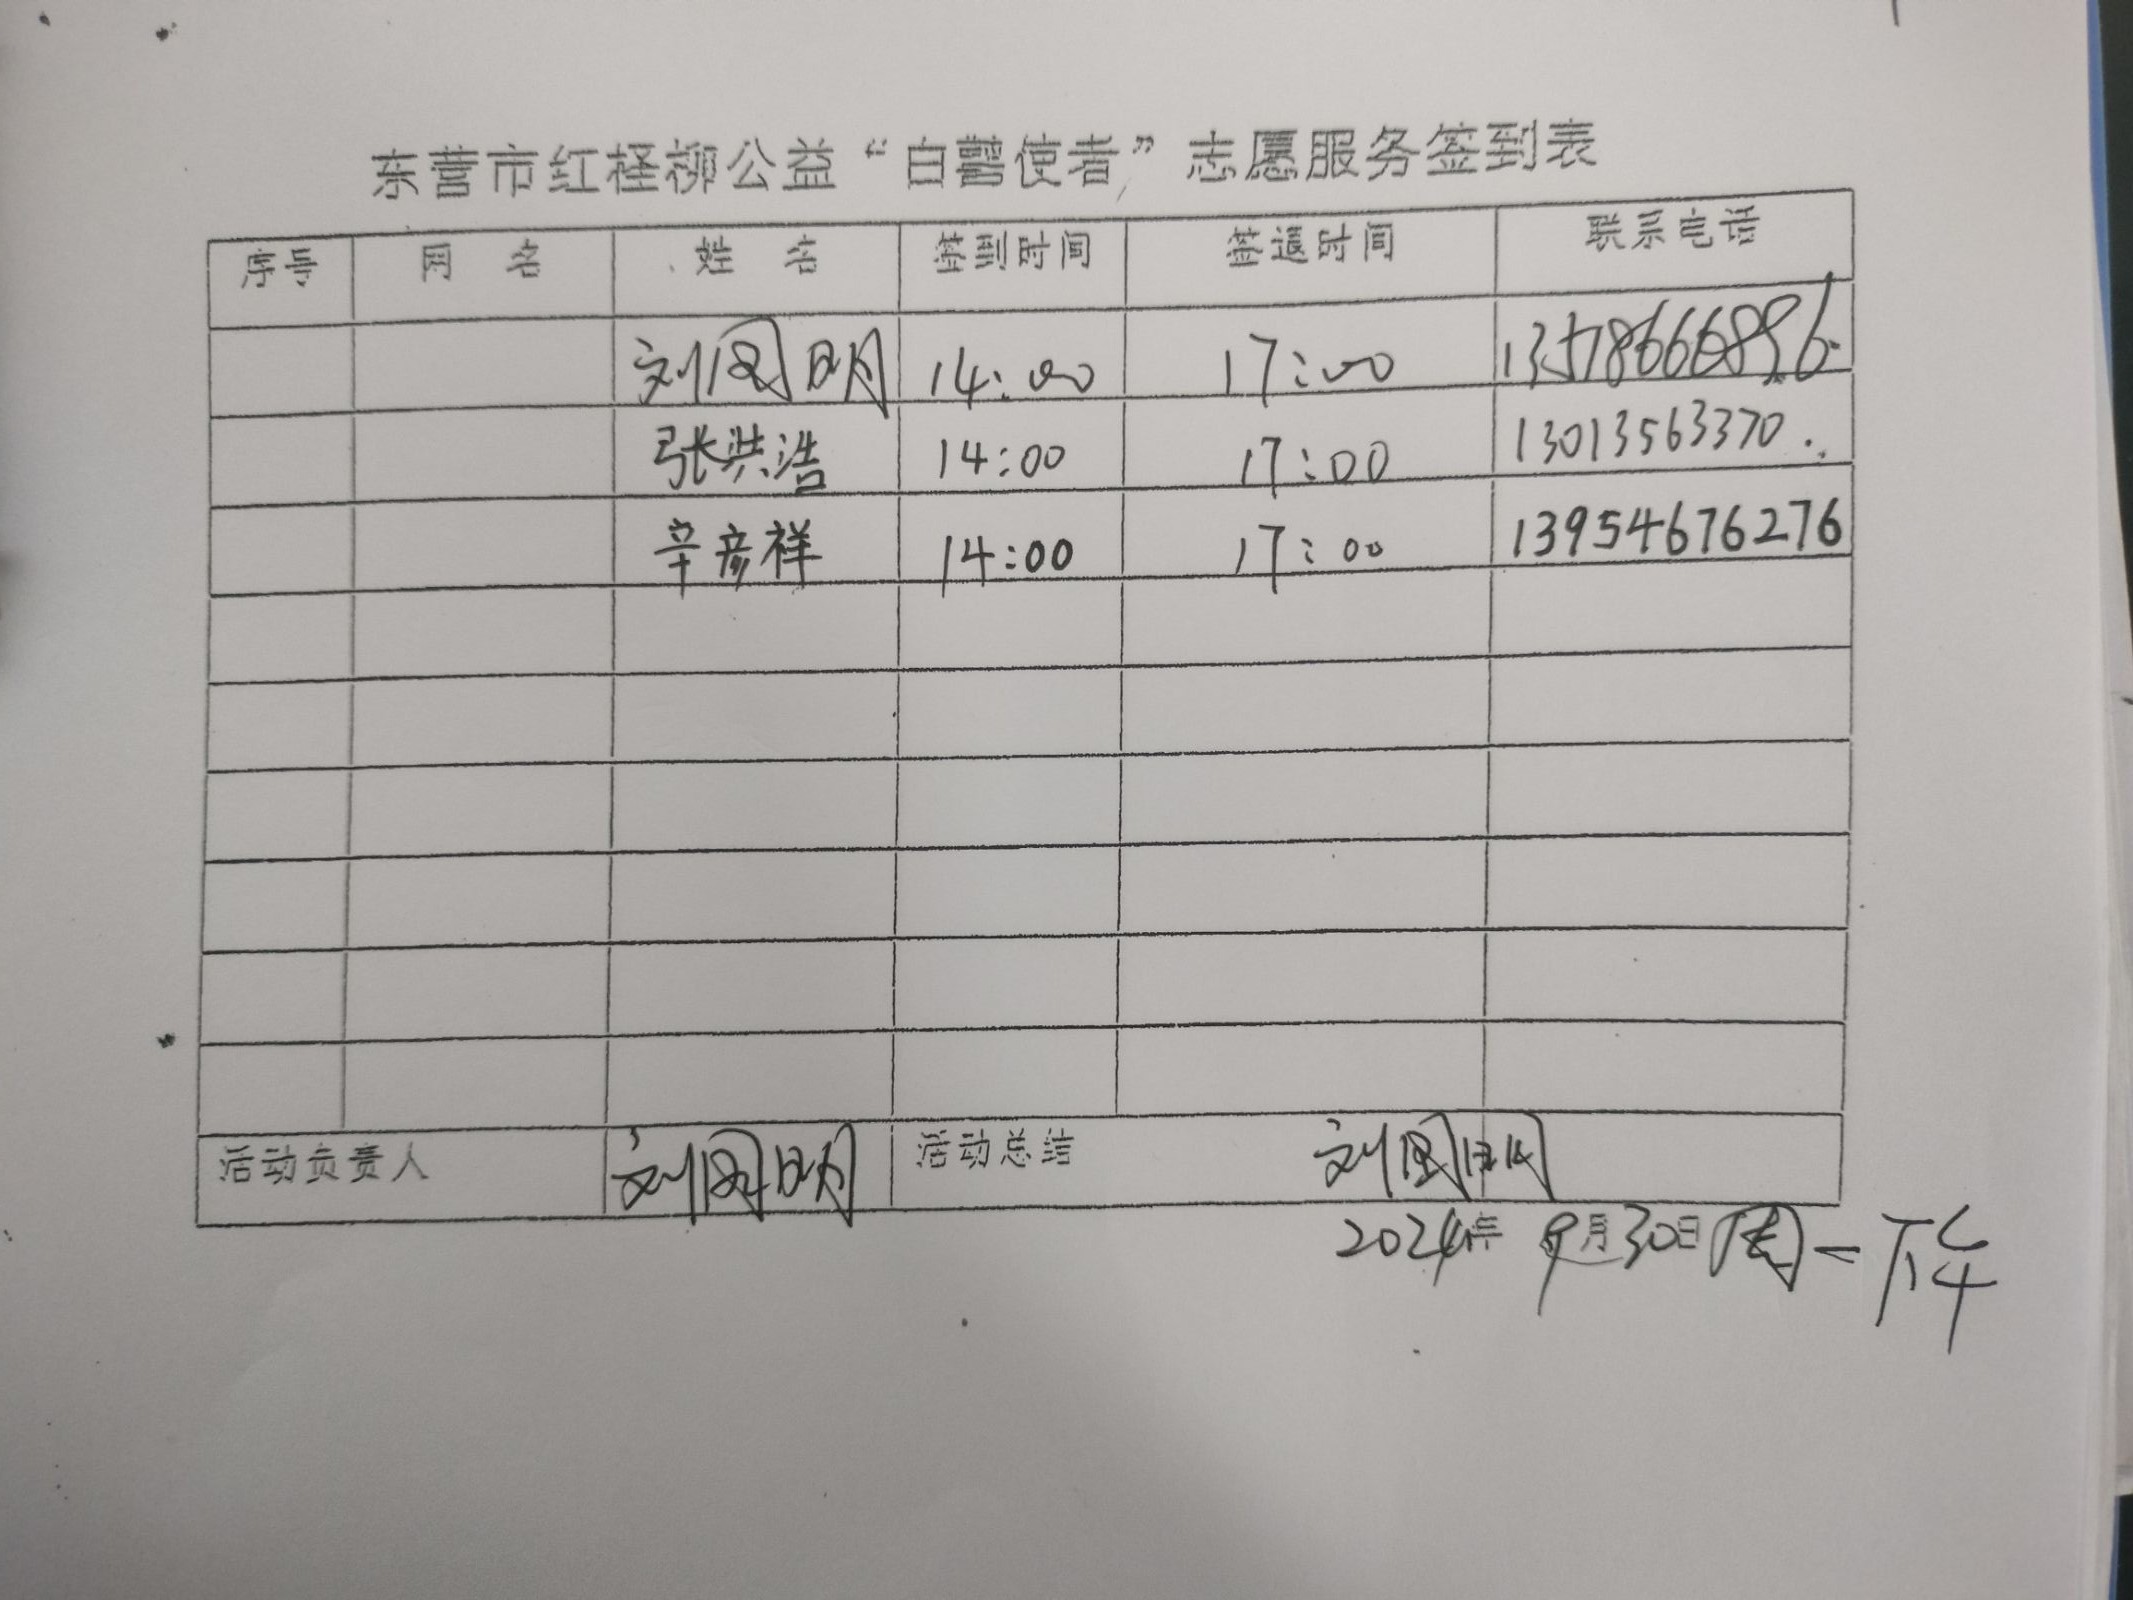 东营市红柽柳公益“白鹭使者”志愿服务签到表
序号 网 名 姓 名 签到时间 签退时间 联系电话
刘国明 14:00 17:00
张洪浩 14:00 17:00 13013563370.
辛彦祥 14:00 17:00 13954676276
活动负责人 刘国明 活动总结 刘国明
2024年 9月30日 周一 下午